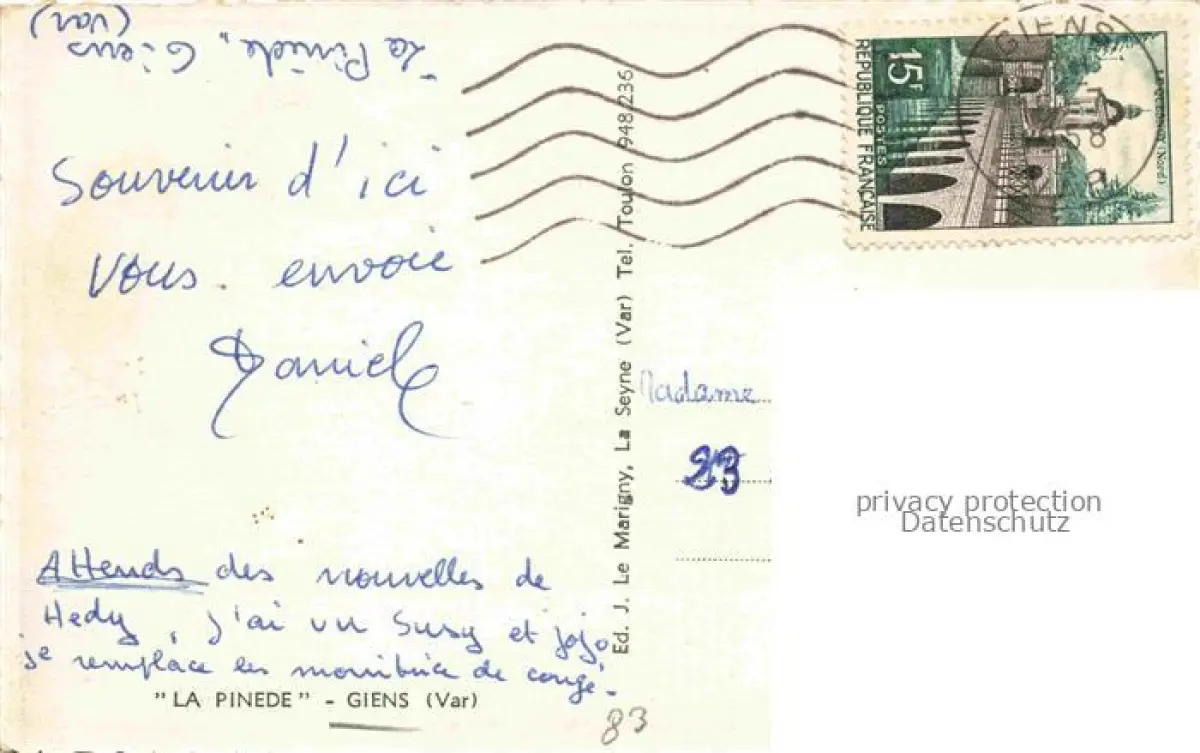 "La Pinède", Giens
(Var)
Souvenir d'ici
vous envoie
Daniel
Attends des nouvelles de
Hedy, j'ai vu Susy et jojo
je remplace les monitrice de congé.
"LA PINEDE" - GIENS (Var)
83
Ed. J. Le Marigny, La Seyne (Var) Tel. Toulon 948236
GIENS
15F
POSTES
REPUBLIQUE FRANÇAISE
(Nord)
Madame
privacy protection
Datenschutz